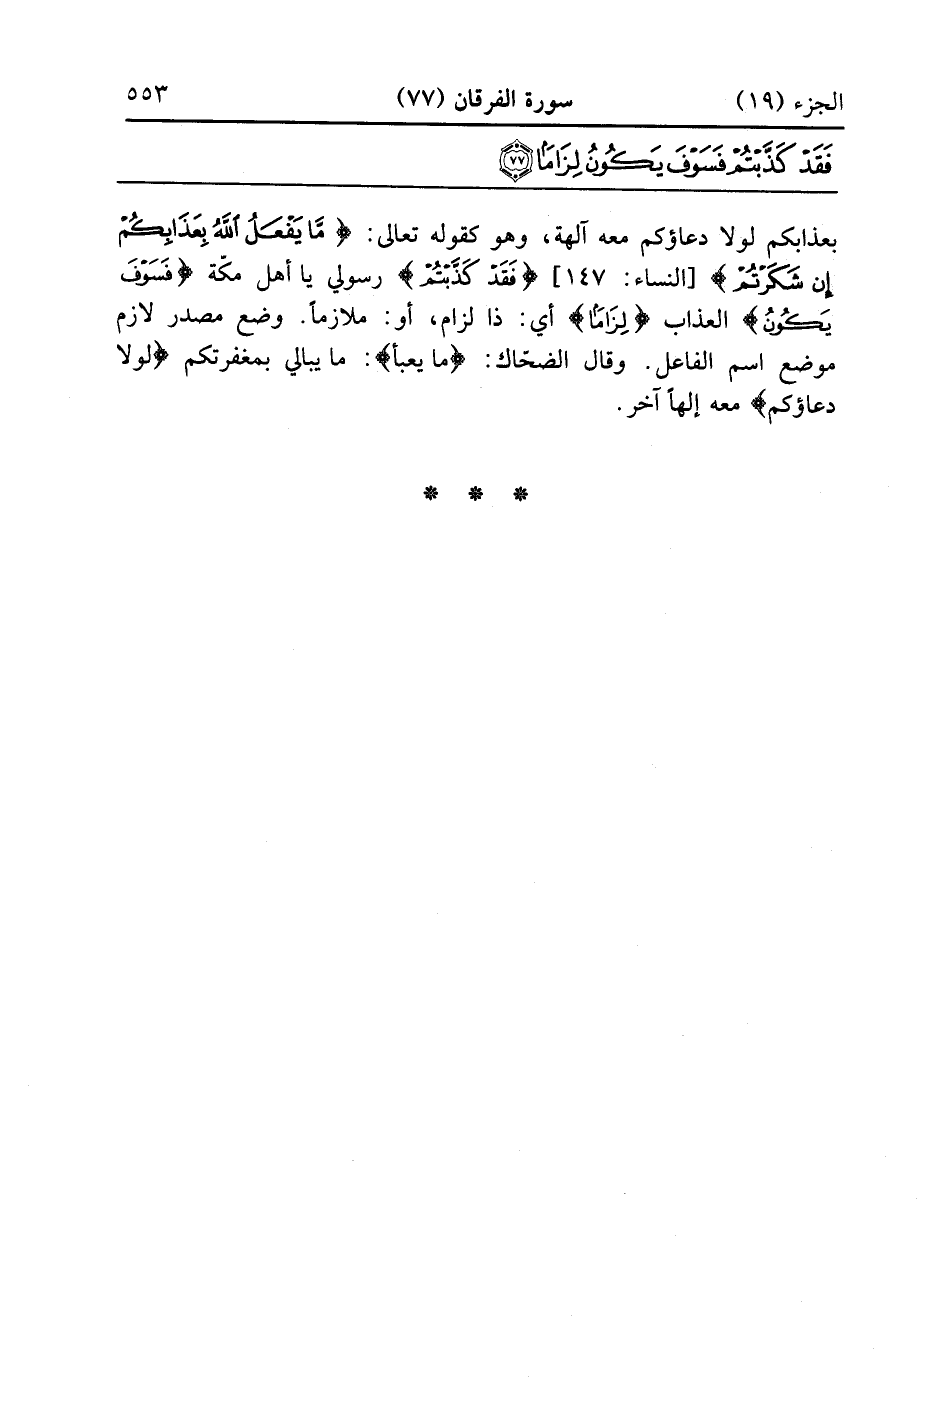 الجزء (١٩) سورة الفرقان (٧٧) ٥٥٣
فَقَدْ كَذَّبْتُمْ فَسَوْفَ يَكُونُ لِزَامًا ﴿٧٧﴾
بعذابكم لولا دعاؤكم معه آلهة، وهو كقوله تعالى: ﴿ مَّا يَفْعَلُ ٱللَّهُ بِعَذَابِكُمْ
إِن شَكَرْتُمْ ﴾ [النساء: ١٤٧] ﴿فَقَدْ كَذَّبْتُمْ﴾ رسولي يا أهل مكّة ﴿فَسَوْفَ
يَكُونُ﴾ العذاب ﴿لِزَامًا﴾ أي: ذا لزام، أو: ملازماً. وضع مصدر لازم
موضع اسم الفاعل. وقال الضحّاك: ﴿ما يعبأ﴾: ما يبالي بمغفرتكم ﴿لولا
دعاؤكم﴾ معه إلهاً آخر.
* * *